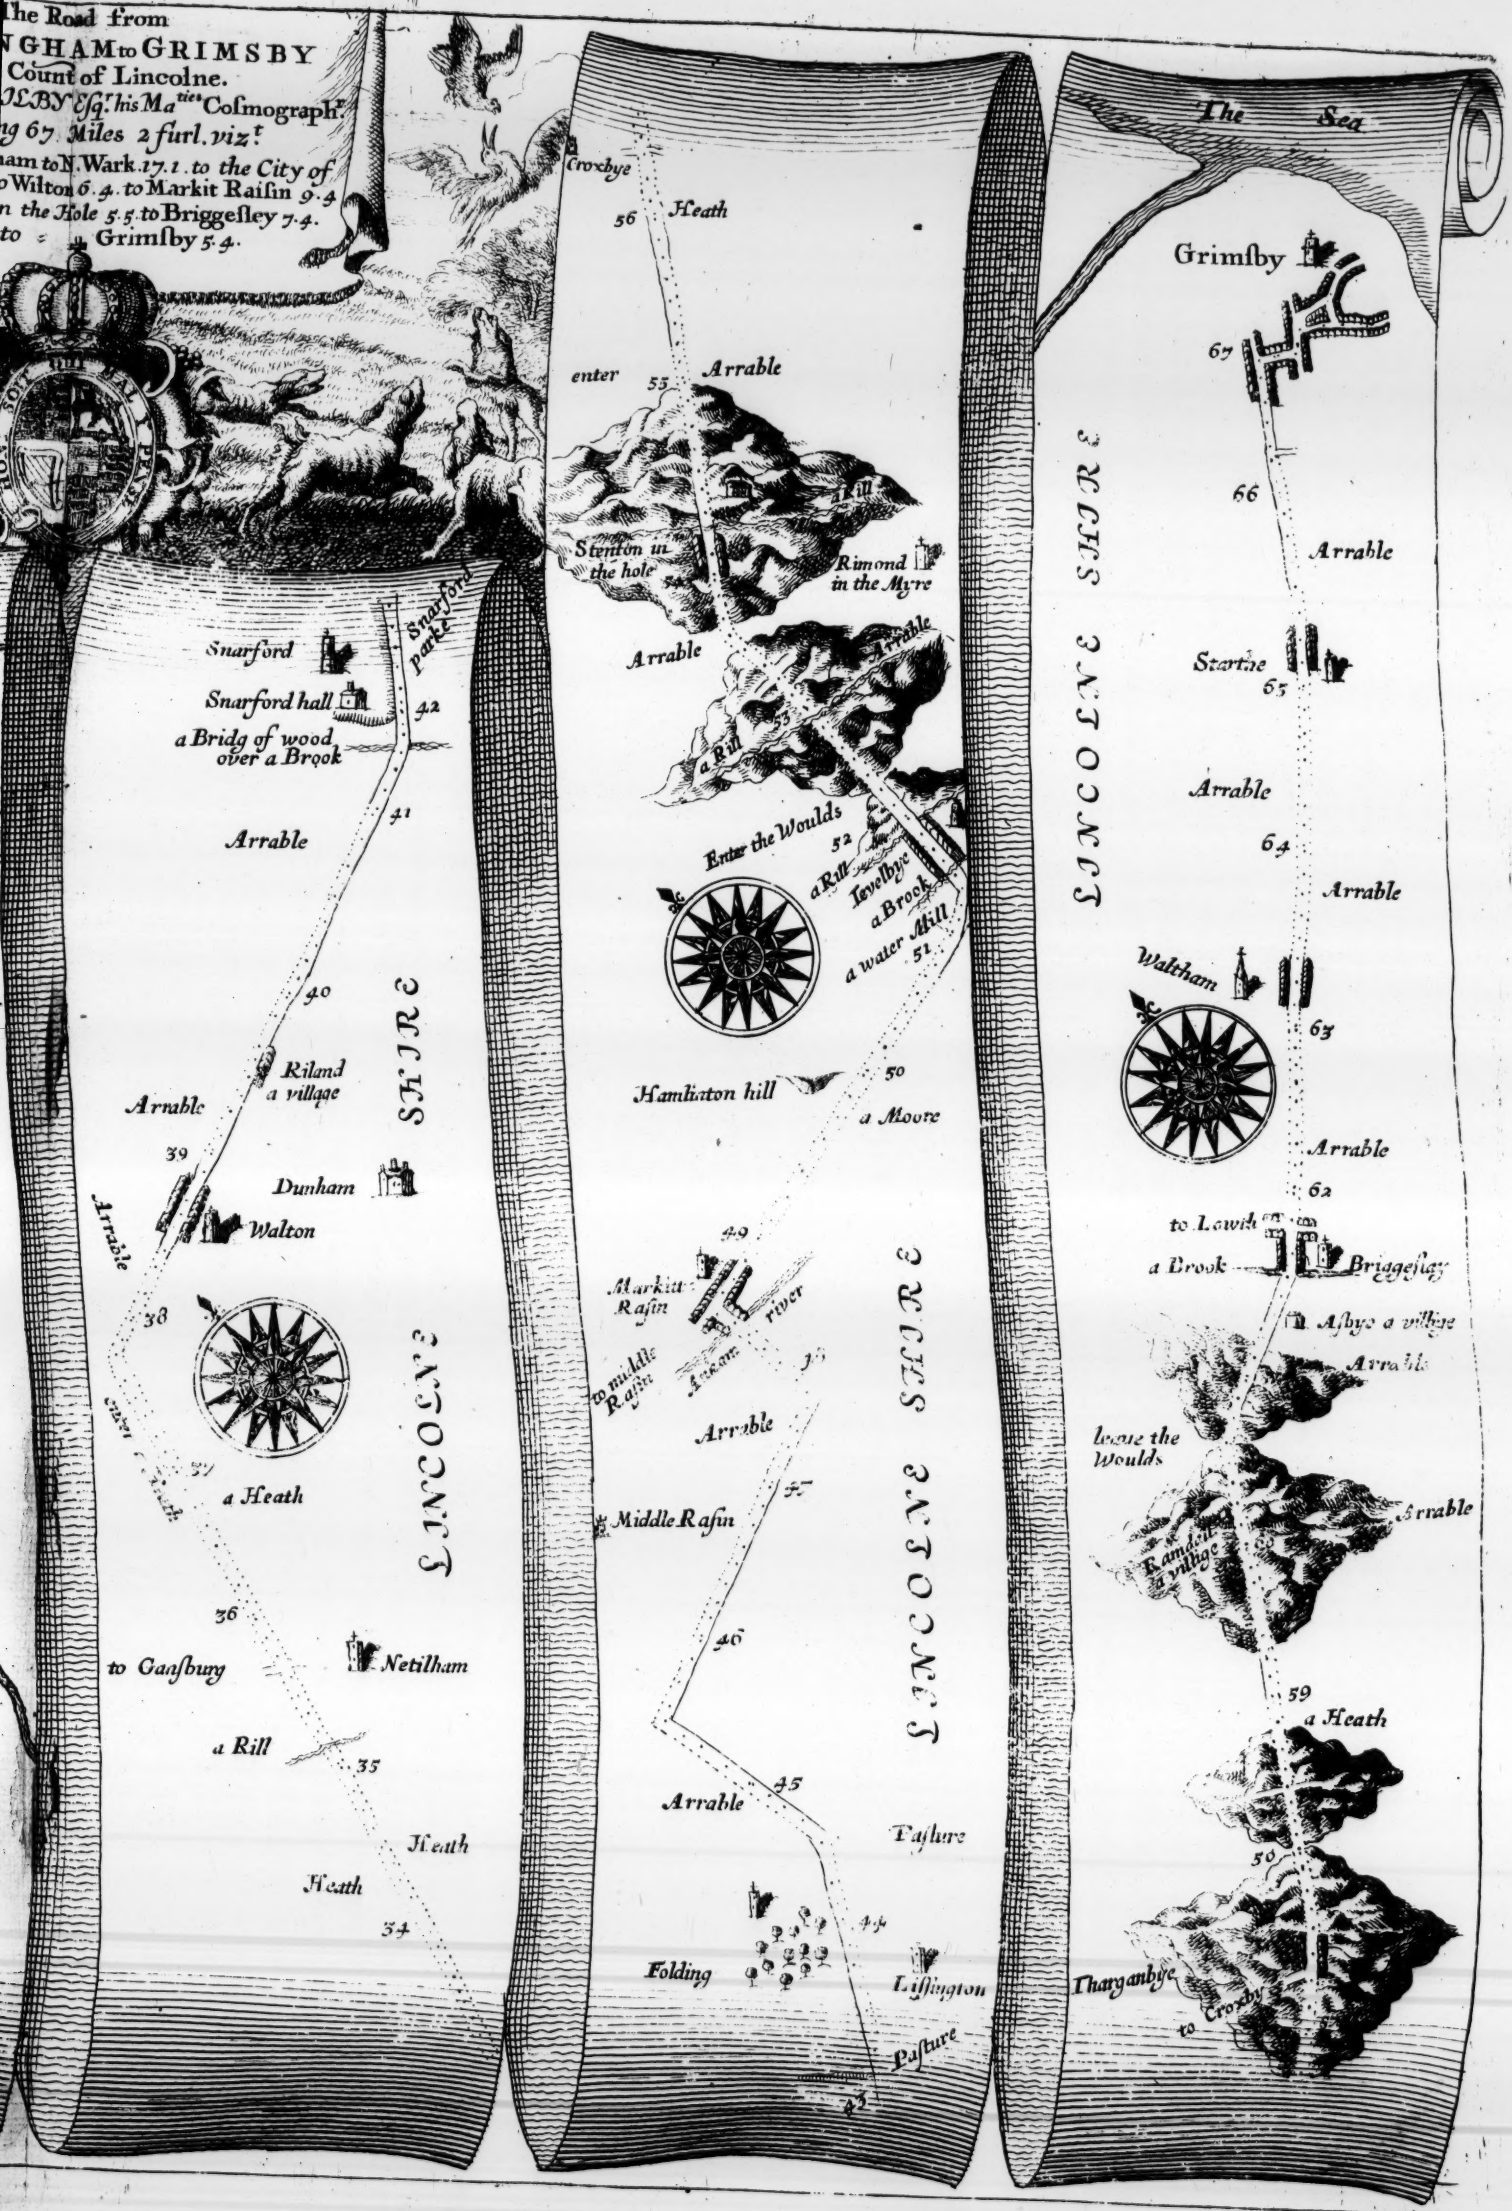 The Road from
NGHAM to GRIMSBY
Count of Lincolne.
JLBY Esqr. his Maties Cosmographr.
ng 67 Miles 2 furl. vizt.
ham to N. Wark. 17. 1. to the City of
o Wilton 6. 4. to Markit Raisin 9. 4
n the Hole 5. 5. to Briggesley 7. 4.
to Grimsby 5. 4.
HON SOIT QUI MAL Y PENSE
Snarford
parke
Snarford
Snarford hall
42
a Bridg of wood
over a Brook
41
Arrable
40
Riland
a village
Arrable
39
Dunham
Walton
Arrable
38
37
a Heath
36
to Gansburg
Netilham
a Rill
35
Heath
Heath
34
LINCOLNE SHIRE
Croxbye
56
Heath
enter
55
Arrable
a Rill
Stenton in
the hole
54
Rimond
in the Myre
Arrable
Arrable
53
a Rill
Enter the Woulds
52
a Rill
Tevelbye
a Brook
a water Mill
51
50
Hamliaton hill
a Moore
49
Markitt
Rasin
river
Ankam
to middle
Rasin
Arrable
47
Middle Rasin
46
45
Arrable
Pasture
44
Folding
Lissington
Pasture
43
LINCOLNE SHIRE
The Sea
Grimsby
67
66
Arrable
Starthe
65
Arrable
64
Arrable
Waltham
63
Arrable
62
to Lowth
a Brook
Briggeslay
Asbye a village
Arrable
leave the
Woulds
Arrable
a village
59
a Heath
58
Tharganbye
to Croxby
LINCOLNE SHIRE